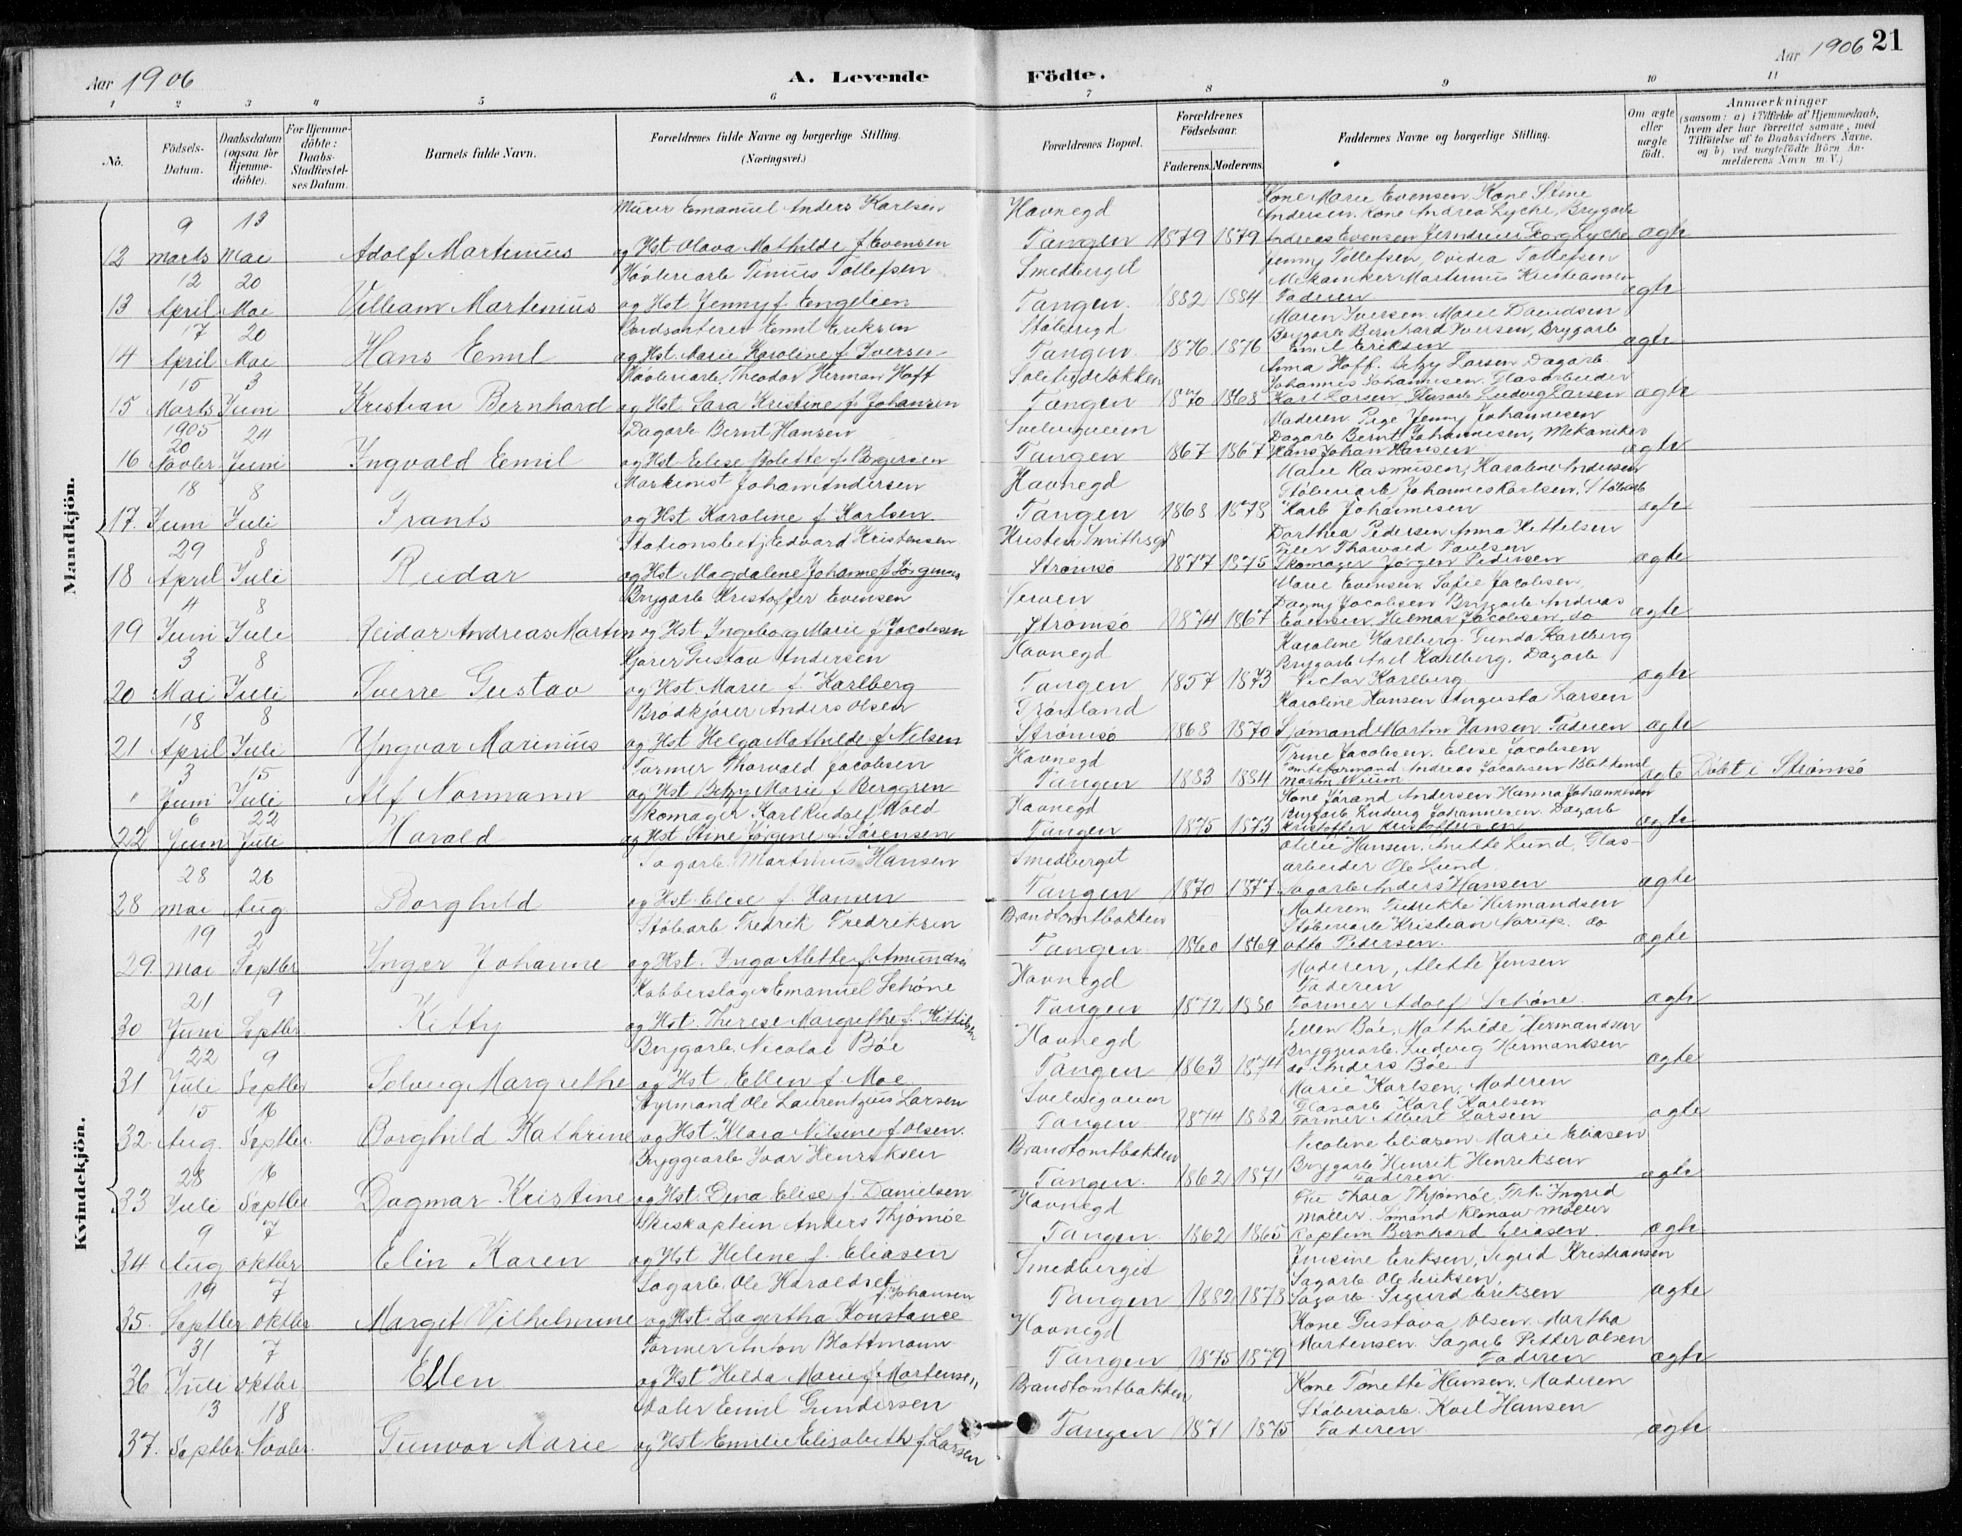 Aar 1906
A. Levende Födte.
Aar 1906 21
1 2 3 4 5 6 7 8 9 10 11
No.
Födsels-Datum.
Daabsdatum (ogsaa for Hjemme-döbte).
For Hjemme-döbte: Daabs-Stadfæstel-ses Datum.
Barnets fulde Navn.
Forældrenes fulde Navne og borgerlige Stilling.
(Næringsvei.)
Forældrenes Bopæl.
Forældrenes Födselsaar.
Faderens. Moderens.
Faddernes Navne og borgerlige Stilling.
Om ægte eller uægte födt.
Anmærkninger
(saasom: a) i Tilfælde af Hjemmedaab, hvem der har forrettet samme, med Tilföielse af to Daabsvidners Navne. og b) ved uægtefödte Börn An-melderens Navn m. V.)
Mandkjön.
12 9 Marts 13 Mai Adolf Martenius Murer Emanuel Anders Karlsen
og Hst Olava Mathilde f Evensen Havnegd Tangen 1879 1879 Kone Marie Evensen Kone Stine
Andersen. Kone Andrea Lyche, Brygarb
Andreas Evensen Georg Lyche ægte
13 12 April 20 Mai Villiam Martenius Høvleriarb Tinius Tollefsen
og Hst Jenny f. Engelien Smedberget Tangen. 1882 1884 Jenny Tollefsen, Ovidia Tollefsen
Mekaniker Martinius Kristiansen
Faderen ægte
14 17 April 20 Mai Hans Emil Bordsorterer Emil Eriksen
og Hst. Marie Karoline f. Iversen Tangen 1876 1876 Maren Iversen. Marie Davidsen
Brygarb Bernhard Iversen, Brygarb
Emil Eriksen ægte
15 15 Marts 3 Juni Kristian Bernhard Høvleriarb. Theodor Herman Hoff
og Hst. Sara Kristine f. Johansen Tangen 1870 1868 Anna Hoff. Larsen Dagarb.
Johannes Johannesen. Glasarbeider
Karl Larsen Glasarb Ludvig Larsen ægte
16 1905 20 Novbr 24 Juni Ingvald Emil Dagarb Bernt Hansen
og Hst. Elise Bolette f. Børgersen Tangen 1867 1867 Moderen Pige Jenny Johannesen
Dagarb Bernt Johannesen, Mekaniker
Hans Johan Hansen ægte
17 18 Juni 8 Juli Frants Maskinist Johan Andersen
og Hst Karoline f. Karlsen Havnegd Tangen 1868 1878 Marie Rasmusen, Karoline Andersen
Støberiarb Johannes Karlsen. Støberiarb
Karl Johannesen ægte
18 29 April 8 Juli Reidar Stationsbetj. Edvard Kristensen
og Hst Magdalene Johanne f. Jørgensen Kristen Smithsgt Strømsø 1877 1875 Dorthea Pedersen Anna Kittelsen
Thorvald Paulsen
Skomager Jørgen Pedersen ægte
19 4 Juni 8 Juli Reidar Andreas Martin Brygarb Kristoffer Evensen
og Hst Ingeborg Marie f Jacobsen Strømsø 1874 1867 Marie Evensen. Sofie Jacobsen,
Dagny Jacobsen Brygarb Andreas
Evensen, Helmar Jacobsen, do ægte
20 3 Mai 8 Juli Sverre Gustav Kjører Gustav Andersen
og Hst Marie f. Karlberg Havnegd Tangen 1857 1873 Karoline Karlberg. Gunda Karlberg
Brygarb Karlberg. Dagarb
Victor Karlberg ægte
21 18 April 8 Juli Yngvar Marinius Brødkjører Anders Olsen
og Hst Helga Mathilde f. Nilsen Grønland Strømsø 1868 1870 Karoline Hansen Augusta Larsen
Sjømand Martin Hansen. Faderen ægte
" 3 Juni 15 Juli Alf Normann Former Thorvald Jacobsen
og Hst Betzy Marie f Berggren Havnegd Tangen 1883 1884 Trine Jacobsen. Elise Jacobsen
Tomteformand Andreas Jacobsen
Martin ægte Døbt i Strømsø
22 6 Juni 22 Juli Harald Skomager Karl Rudolf Wold
og Hst Stine Jørgine f. Sørensen Havnegd Tangen 1875 1873 Kone Jørand Andersen Hanna Johannesen
Brygarb Ludvig Johannesen. Dagarb
Kristoffer Kristoffersen ægte
Kvindekjön.
28 28 Mai 26 Aug. Borghild Sagarb. Martinius Hansen
og Hst. Elise f. Hansen Smedberget Tangen 1870 1877 Otilie Hansen. Anette Lund, Glas-
arbeider Ole Lund
Sagarb Anders Hansen ægte
29. 19 Mai 2 Septbr. Inger Johanne Støbarb Fredrik Fredriksen
og Hst. Inga Alette f. Amundsen Brandtomtbakken Tangen 1860 1869 Moderen Fredrikke Hermandsen
Støberiarb Kristian do
Otto Pedersen. ægte
30 21 Juni 9 Septbr. Kitty Kobberslager Emanuel Schöne
og Hst. Therese Margrethe f. Kittilsen Havnegd Tangen 1872 1880 Moderen, Alette Jensen
Faderen
Former Adolf Schöne. ægte
31 22 Juli 9 Septbr Solveig Margrethe Brygarb. Nicolai Bøe
og Hst Ellen f. Moe Havnegd Tangen 1863 1874 Ellen Bøe, Mathilde Hermandsen
Bryggearb. Ludvig Hermandsen
do Anders Bøe ægte
32. 15 Aug. 16 Septbr. Borghild Kathrine Styrmand Ole Laurentzius Larsen
og Hst. Klara Nilsine f Olsen. Tangen 1874 1882 Marie Karlsen, Moderen
Glasarb Karl Karlsen
Former Albert Larsen ægte
33 28 Juli 16 Septbr Dagmar Kristine Bryggearb Ivar Henriksen
og Hst. Gina Elise f. Danielsen Brandtomtbakken Tangen. 1862 1871 Nicoline Eliasen Marie Eliasen
Brygarb Henrik Henriksen
Faderen ægte
34 9 Aug 7 Oktbr Elin Karen Skibskaptein Anders Thjømøe
og Hst Helene f. Eliasen Havnegd Tangen 1862 1865 Fru Thora Thjømøe Frk. Ingrid
Møller. Sømand Møller
Kaptein Bernhard Eliasen ægte
35. 19 Septbr 7 Oktbr Margit Vilhelmine Sagarb. Ole Haraldset
og Hst. Lagertha Konstance f. Johansen Smedberget Tangen 1882 1878 Jensine Eriksen, Sigrid Kristiansen
Sagarb Ole Eriksen,
Sagarb. Sigurd Eriksen ægte
36 31 Juli 7 Oktbr Ellen Former Anton Blattmann
og Hst Hilda Marie f. Martensen Havnegd Tangen 1875 1879 Kone Gustava Olsen. Martha
Martensen. Sagarb Petter Olsen
Faderen ægte
37. 13 Septbr 18 Novbr. Gunvor Marie Maler Emil Gundersen
og Hst Emilie Elisabeth f. Larsen Brandtomtbakken Tangen 1871 1875 Kone Tonette Hansen. Moderen
Støberiarb. Karl Hansen
Faderen ægte